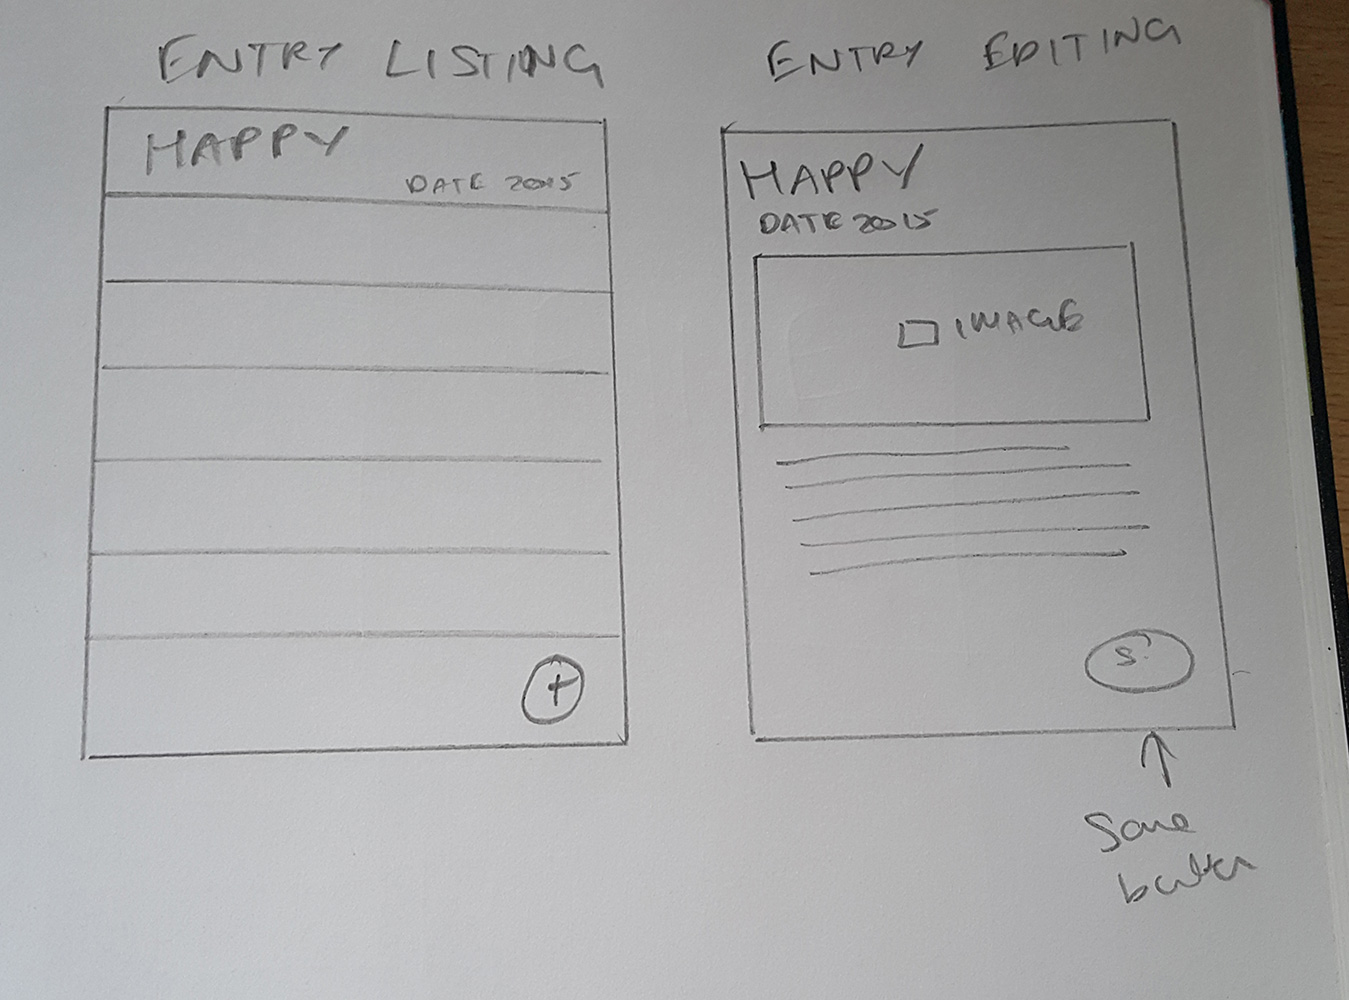 ENTRY LISTING
HAPPY
DATE 2015
+
ENTRY EDITING
HAPPY
DATE 2015
IMAGE
S
Save
button